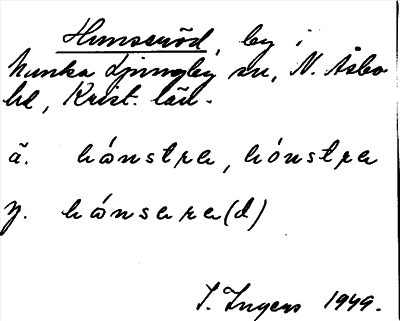 Hunseröd, by i
Munka Ljungby sn, N. Åsbo
hd, Krist. län.
ä. hónstra, hónstra
y. hónsara(d)
I. Ingers 1949.